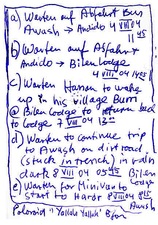 a) Warten auf Abfahrt Bus
Awash → Andido 4 VIII 04
11 45
b) Warten auf Abfahrt
Andido → Bilen Lodge
4 VIII 04 1435 h
c) Warten Hassen to wake
up in his village Burri
@ Bilen Lodge to return back
to Lodge 7 VIII 04 13 00
d) Warten to continue trip
to Awash on dirt road
(stuck in trench) in rain
dark 8 VIII 04 0545 Bilen
Lodge
e) Warten for Minivan to
start to Harar 8 VIII 04
Polaroid "Yallah Yallah"